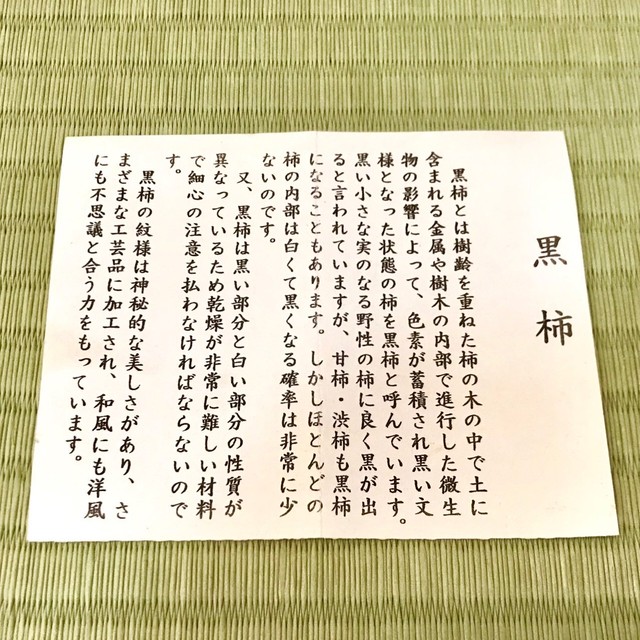 黒柿
黒柿とは樹齢を重ねた柿の木の中で土に
含まれる金属や樹木の内部で進行した微生
物の影響によって、色素が蓄積され黒い文
様となった状態の柿を黒柿と呼んでいます。
黒い小さな実のなる野性の柿に良く黒が出
ると言われていますが、甘柿・渋柿も黒柿
になることもあります。しかしほとんどの
柿の内部は白くて黒くなる確率は非常に少
ないのです。
又、黒柿は黒い部分と白い部分の性質が
異なっているため乾燥が非常に難しい材料
で細心の注意を払わなければならないので
す。
黒柿の紋様は神秘的な美しさがあり、さ
まざまな工芸品に加工され、和風にも洋風
にも不思議と合う力をもっています。